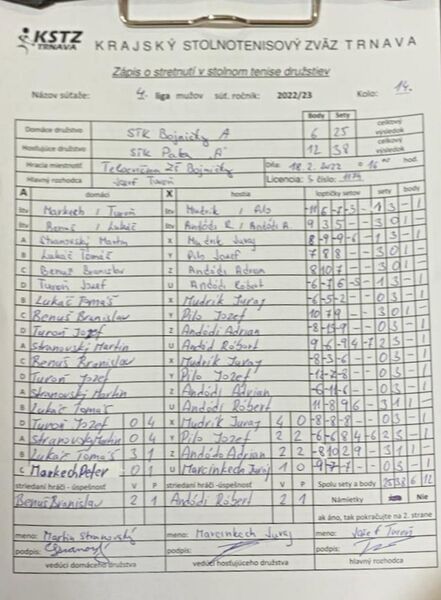 KSTZ TRNAVA KRAJSKÝ STOLNOTENISOVÝ ZVÄZ TRNAVA
Zápis o stretnutí v stolnom tenise družstiev
Názov súťaže: 4. liga mužov súť. ročník: 2022/23 Kolo: 14.
Body Sety
Domáce družstvo STK Bojničky A 6 25 celkový výsledok
Hosťujúce družstvo STK Pata A 12 38 celkový výsledok
Hracia miestnosť Telocvičňa ZŠ Bojničky Dňa: 18.2.2022 o 16 hod.
Hlavný rozhodca Jozef Turoň Licencia: S číslo: 1174
A domáci X hostia loptičky setov sety body
štv Markech / Turoň štv Mudrík / Pilo
štv Benuš / Lukáč štv Andódi R / Andódi A. 9 3 5 - - 3 0 1 -
A Stranovský Martin X Mudrik Juraj 8 -9 -9 -6 - 1 3 - 1
B Lukáč Tomáš Y Pilo Jozef 7 8 8 - - 3 0 1 -
C Benuš Branislav Z Andódi Adrian 8 10 7 - - 3 0 1 -
D Turoň Jozef U Andódi Róbert -6 -7 6 -5 - 1 3 - 1
B Lukáč Tomáš X Mudrik Juraj -6 -5 -2 - - 0 3 - 1
C Benuš Branislav Y Pilo Jozef 10 7 9 - - 3 0 1 -
D Turoň Jozef Z Andódi Adrian 0 3 - 1
A Stranovský Martin U Andódi Róbert 9 -6 -9 4 -7 2 3 - 1
C Benuš Branislav X Mudrik Juraj -8 -3 -6 - - 0 3 - 1
D Turoň Jozef Y Pilo Jozef -12 -2 -8 - - 0 3 - 1
A Stranovský Martin Z Andódi Adrian -6 -11 -6 - - 0 3 - 1
B Lukáč Tomáš U Andódi Róbert 11 -8 9 6 - 3 1 1 -
D Turoň Jozef 0 4 X Mudrik Juraj 4 0 -8 -8 -8 - - 0 3 - 1
A Stranovský Martin 0 4 Y Pilo Jozef 2 2 -6 -6 8 4 -6 2 3 - 1
B Lukáč Tomáš 3 1 Z Andódi Adrian 2 2 -8 10 2 9 - 3 1 1 -
C Markech Peter 0 1 U Marcinkech Juraj 1 0 -9 -7 -7 - - 0 3 - 1
striedaní hráči - úspešnosť V P striedaní hráči - úspešnosť V P Spolu sety a body 25 38 6 12
Benuš Branislav 2 1 Andódi Róbert 2 1 Námietky Nie
ak áno, tak pokračujte na 2. strane
meno: Martin Stranovský meno: Marcinkech Juraj meno: Jozef Turoň
podpis: podpis: podpis:
vedúci domáceho družstva vedúci hosťujúceho družstva hlavný rozhodca